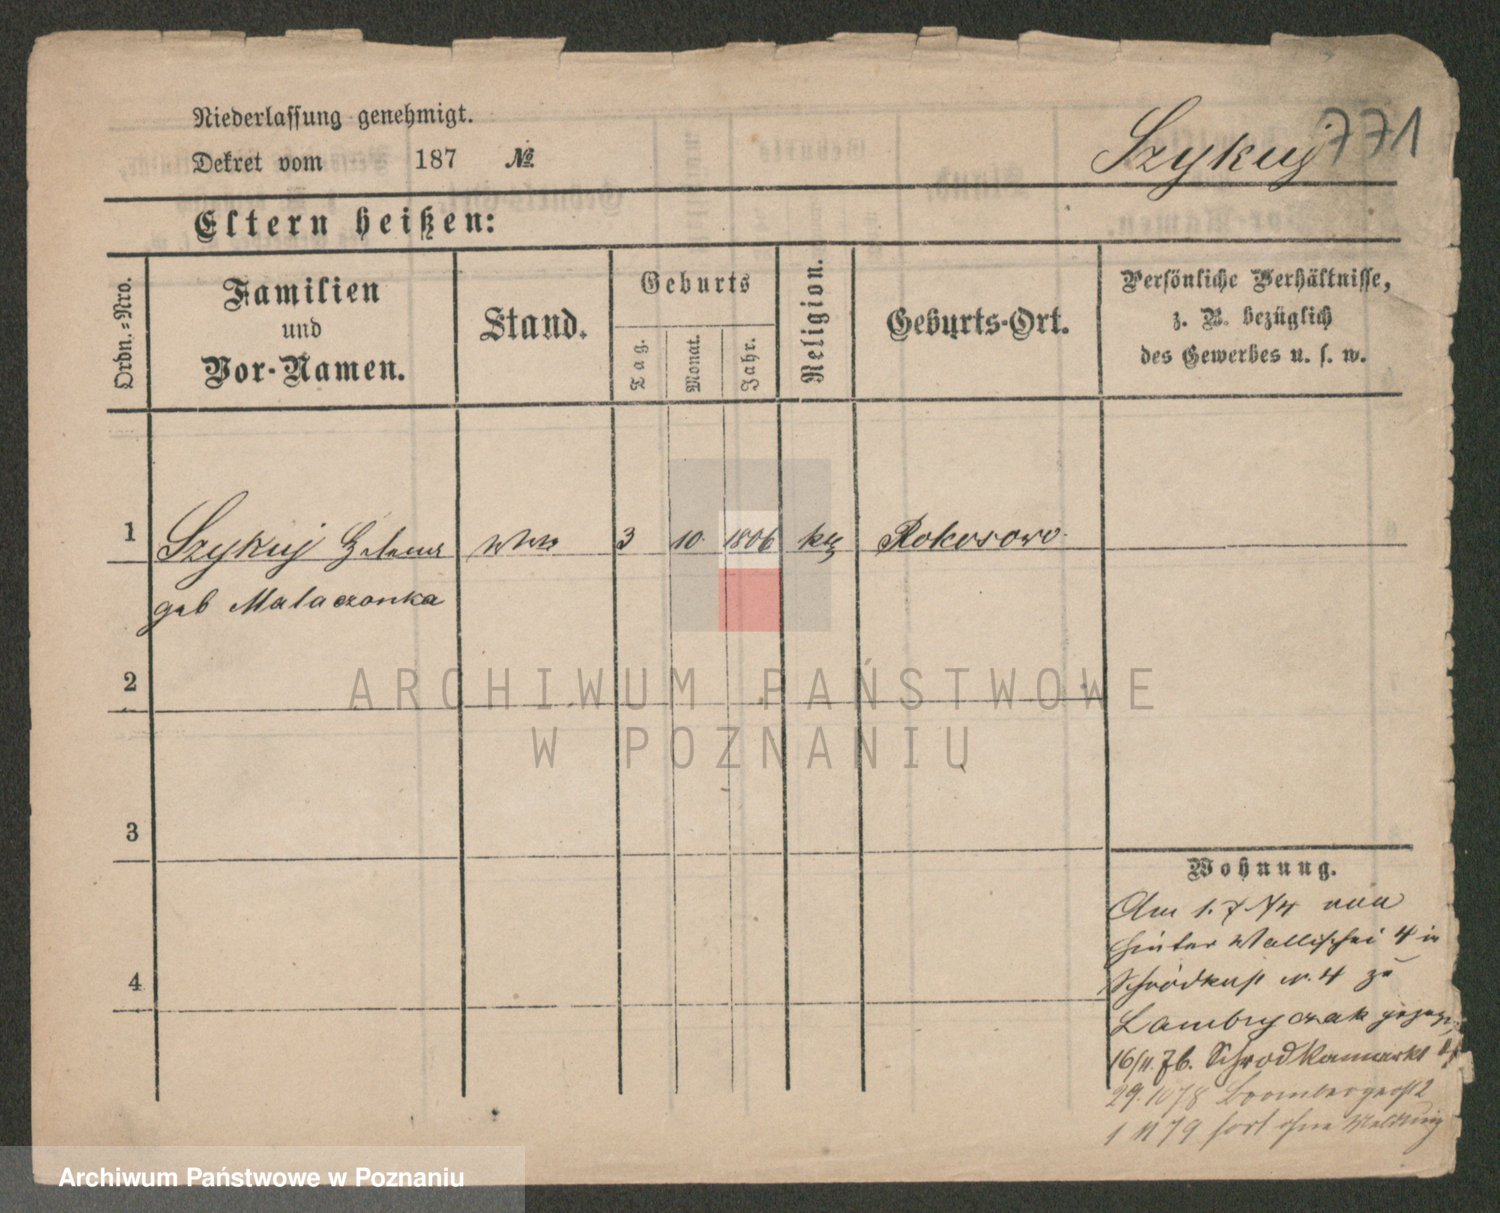 Niederlassung genehmigt.
Dekret vom 187 №
Szykuj 771
Eltern heißen:
Ordn.-Nro.
Familien
und
Vor-Namen.
Stand.
Geburts
Tag.
Monat.
Jahr.
Religion.
Geburts-Ort.
Persönliche Verhältnisse,
z. B. bezüglich
des Gewerbes u. s. w.
1 Szykuj Helena 3 10 1806 Rokosowo
geb Malaczonka
2
3
4
Wohnung.
Am 1.7.74 von
hinter Wallischei 4 in
Schrodka N. 4 zu
Lambryczak
16/11.76. Schrodkamarkt
29.10 78 Brombergerst 2
1 11 79 fort ohne Meldung
ARCHIWUM PAŃSTWOWE
W POZNANIU
Archiwum Państwowe w Poznaniu